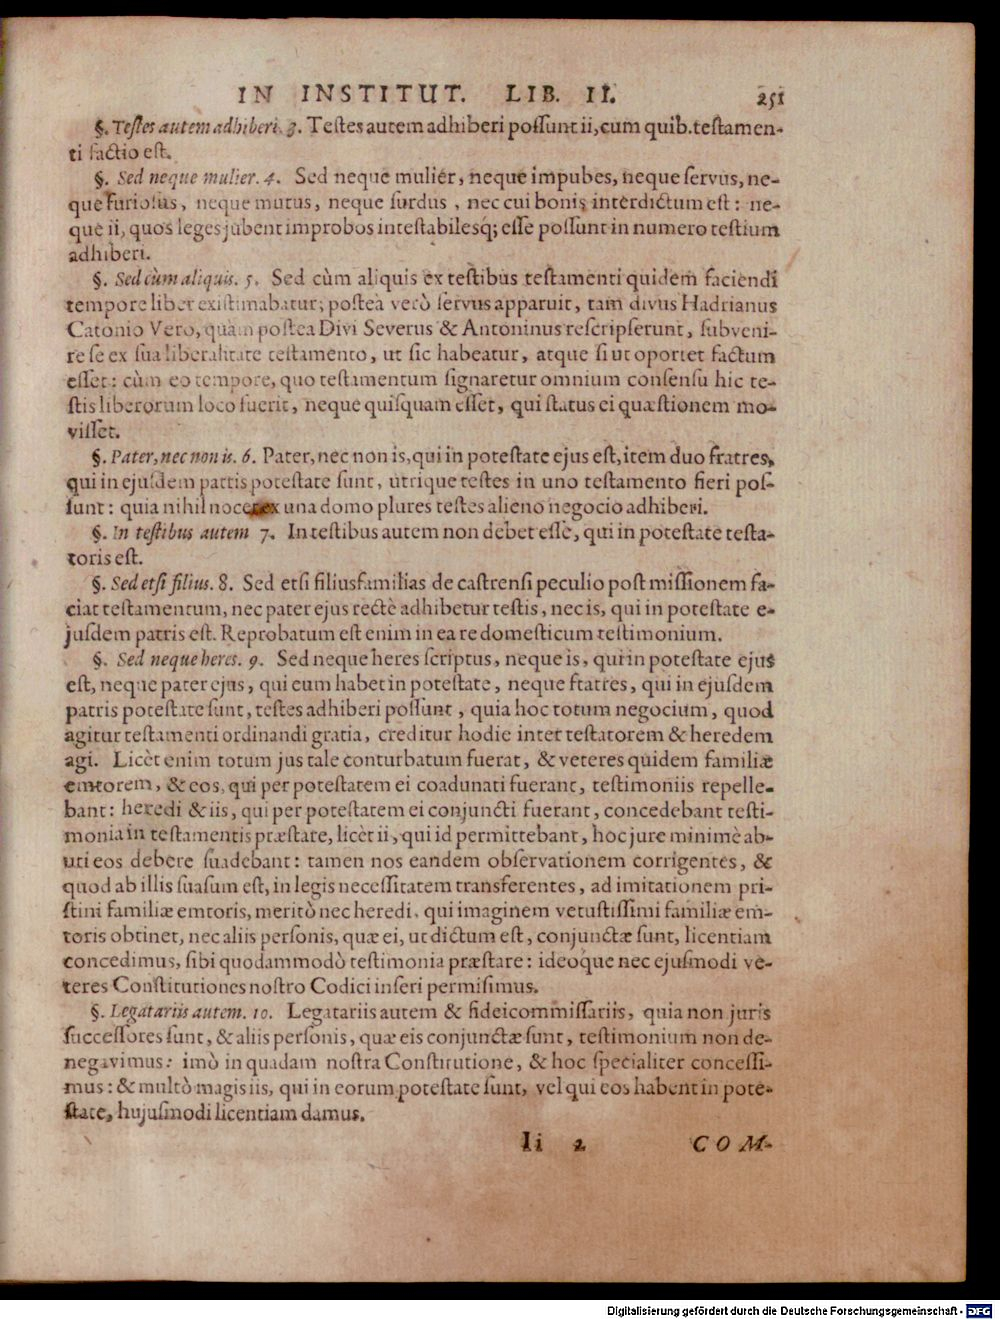 IN INSTITUT. LIB. II. 251
§. Testes autem adhiberi. 3. Testes autem adhiberi possunt ii, cum quib. testamen-
ti factio est.
§. Sed neque mulier. 4. Sed neque muliér, neque impubes, neque servus, ne-
que furiosus, neque mutus, neque surdus, nec cui bonis interdictum est: ne-
que ii, quos leges jubent improbos intestabilesq; esse possunt in numero testium
adhiberi.
§. Sed cùm aliquis. 5. Sed cùm aliquis ex testibus testamenti quidem faciendi
tempore liber existimabatur, postea verò servus apparuit, tam divus Hadrianus
Catonio Vero, quàm postea Divi Severus & Antoninus rescripserunt, subveni-
re se ex sua liberalitate testamento, ut sic habeatur, atque si ut oportet factum
esset: cùm eo tempore, quo testamentum signaretur omnium consensu hic te-
stis liberorum loco fuerit, neque quisquam esset, qui status ei quæstionem mo-
visset.
§. Pater, nec non is. 6. Pater, nec non is, qui in potestate ejus est, item duo fratres,
qui in ejusdem patris potestate sunt, utrique testes in uno testamento fieri pos-
sunt: quia nihil nocet ex una domo plures testes alieno negocio adhiberi.
§. In testibus autem 7. In testibus autem non debet esse, qui in potestate testa-
toris est.
§. Sed etsi filius. 8. Sed etsi filiusfamilias de castrensi peculio post missionem fa-
ciat testamentum, nec pater ejus rectè adhibetur testis, nec is, qui in potestate e-
jusdem patris est. Reprobatum est enim in ea re domesticum testimonium.
§. Sed neque heres. 9. Sed neque heres scriptus, neque is, qui in potestate ejus
est, neque pater ejus, qui eum habet in potestate, neque fratres, qui in ejusdem
patris potestate sunt, testes adhiberi possunt, quia hoc totum negocium, quod
agitur testamenti ordinandi gratia, creditur hodie inter testatorem & heredem
agi. Licèt enim totum jus tale conturbatum fuerat, & veteres quidem familiæ
emtorem, & eos, qui per potestatem ei coadunati fuerant, testimoniis repelle-
bant: heredi & iis, qui per potestatem ei conjuncti fuerant, concedebant testi-
monia in testamentis præstare, licèt ii, qui id permittebant, hoc jure minimè ab-
uti eos debere suadebant: tamen nos eandem observationem corrigentes, &
quod ab illis suasum est, in legis necessitatem transferentes, ad imitationem pri-
stini familiæ emtoris, meritò nec heredi, qui imaginem vetustissimi familiæ em-
toris obtinet, nec aliis personis, quæ ei, ut dictum est, conjunctæ sunt, licentiam
concedimus, sibi quodammodò testimonia præstare: ideoque nec ejusmodi ve-
teres Constitutiones nostro Codici inseri permisimus.
§. Legatariis autem. 10. Legatariis autem & fideicommissariis, quia non juris
successores sunt, & aliis personis, quæ eis conjunctæ sunt, testimonium non de-
negavimus: imò in quadam nostra Constitutione, & hoc specialiter concessi-
mus: & multò magis iis, qui in eorum potestate sunt, vel qui eos habent in pote-
state, hujusmodi licentiam damus.
Ii 2 COM-
Digitalisierung gefördert durch die Deutsche Forschungsgemeinschaft - DFG